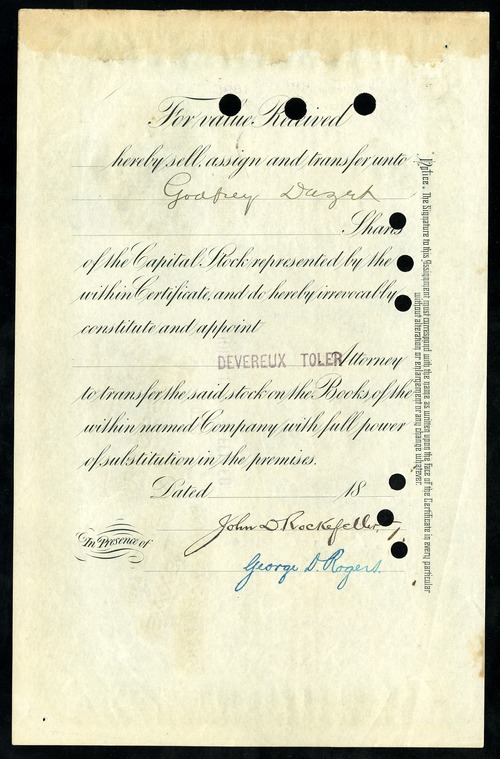 For value Received
hereby sell, assign and transfer unto
Godfrey
Shares
of the Capital Stock represented by the
within Certificate, and do hereby irrevocably
constitute and appoint
DEVEREUX TOLER Attorney
to transfer the said stock on the Books of the
within named Company with full power
of substitution in the premises.
Dated 18
In Presence of
John D Rockefeller
George D. Rogers.
Notice. The Signature to this Assignment must correspond with the name as written upon the face of the Certificate in every particular
without alteration or enlargement or any change whatever.